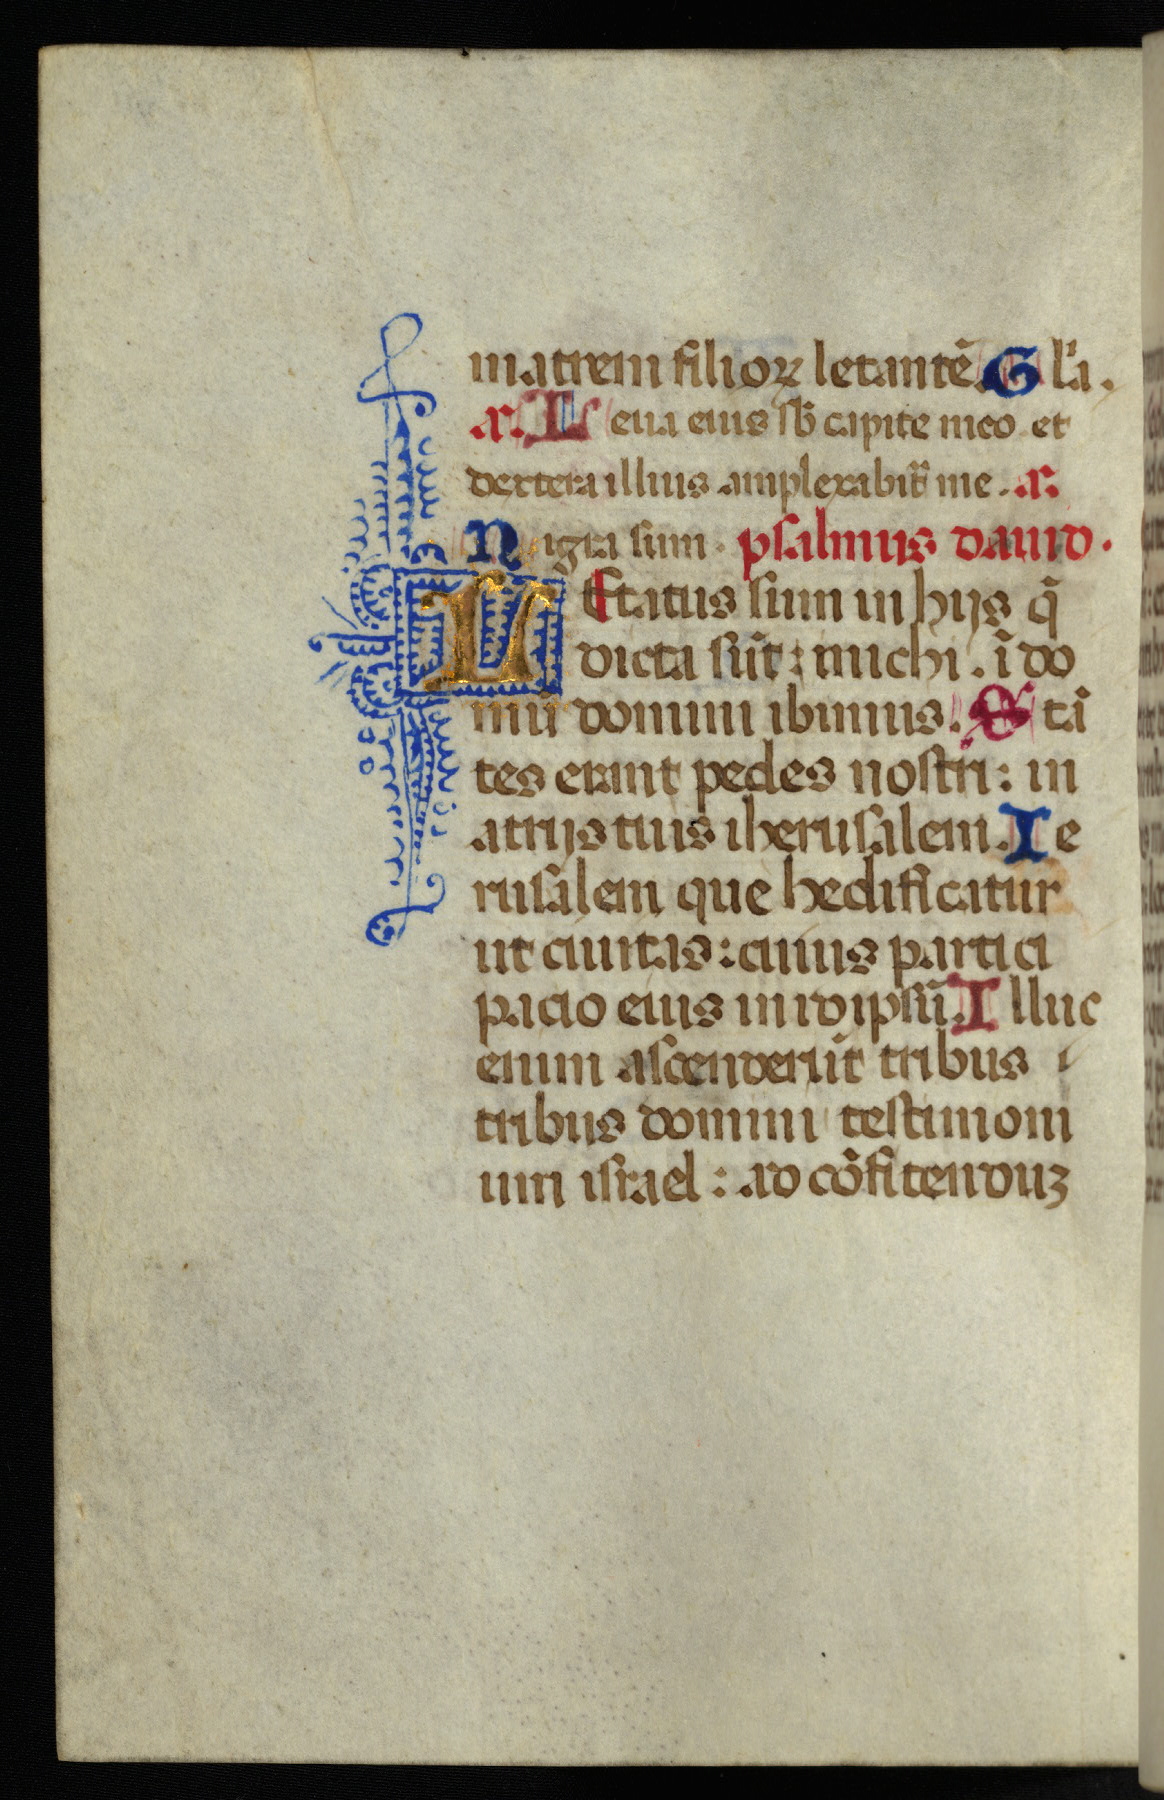 matrem filioꝝ letantē. Gl'a.
a. Leua eius sb̄ capite meo et
dextera illius amplexabit᷑ me. a.
Nigra sum. psalmus dauid.
LEtatus sum in hijs q̄
dicta sūt: michi. ī do
mū domini ibimus. Stā
tes erant pedes nostri: in
atrijs tuis iherusalem. Ie
rusalem que hedificatur
ut ciuitas: cuius partici
pacio eius in idipsū. Illuc
enim ascenderūt tribus
tribus domini testimoni
um israel: ad cōfitenduꝫ